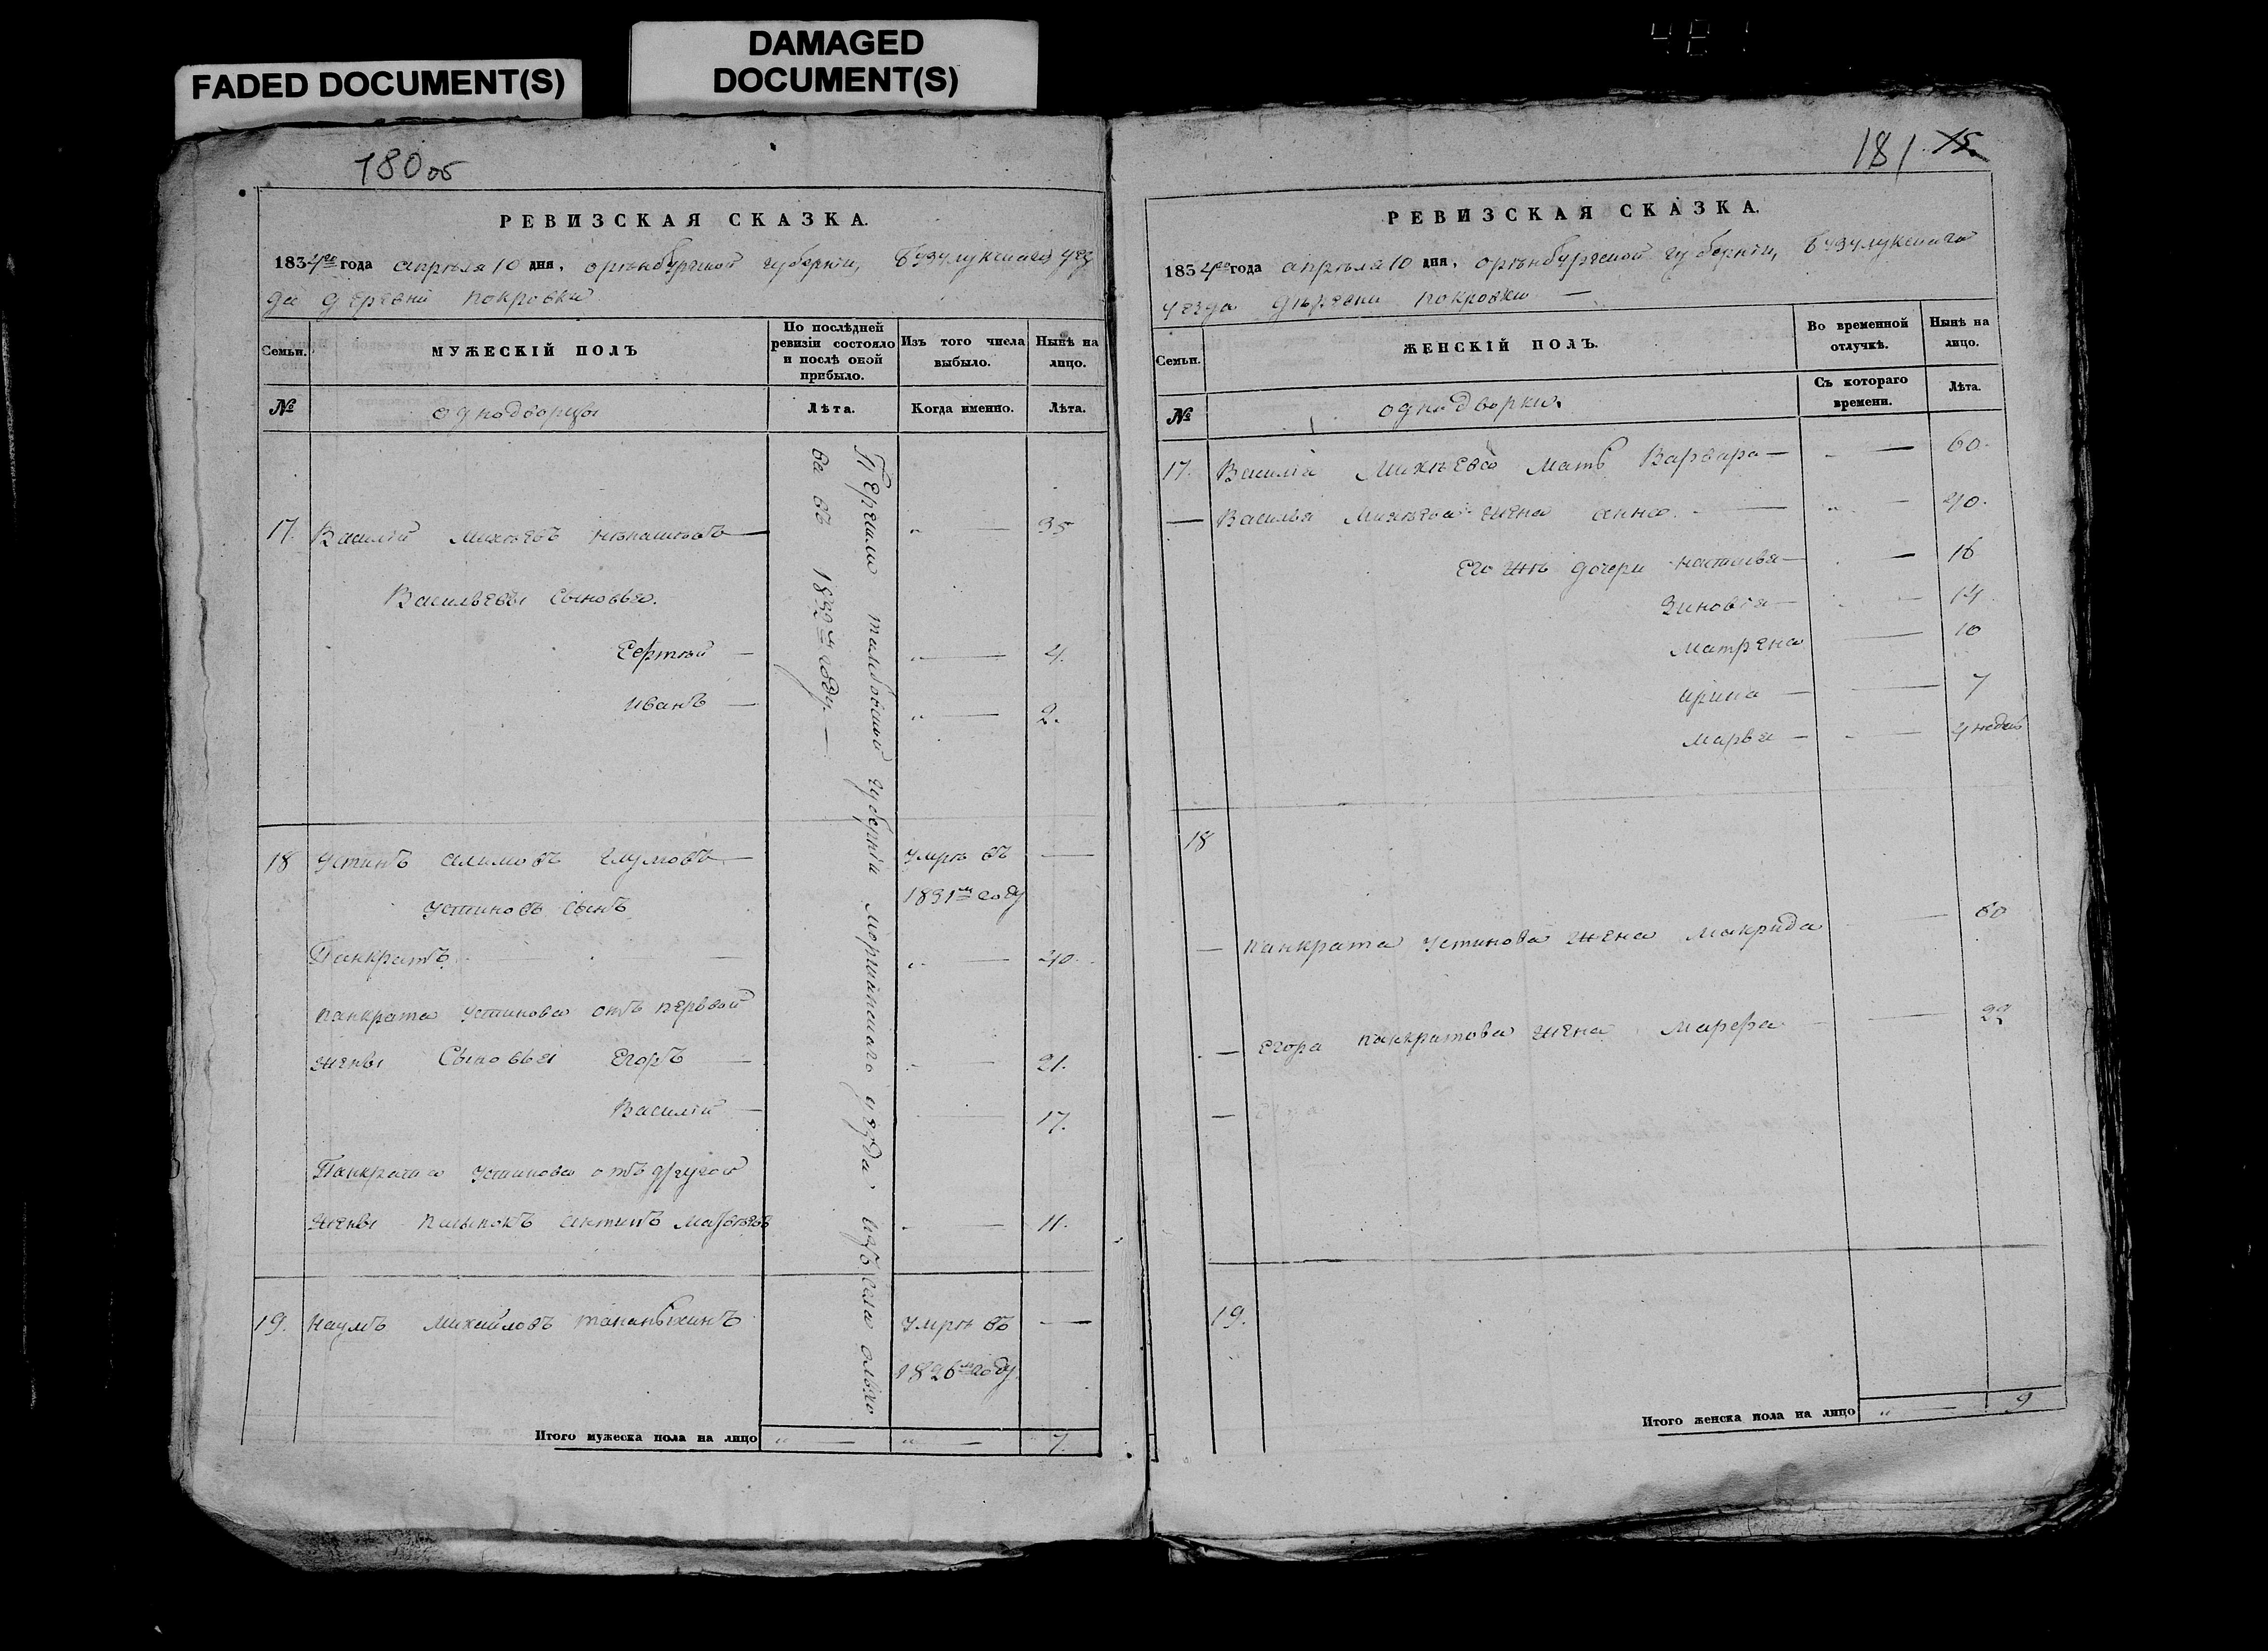 FADED DOCUMENT(S)
DAMAGED
DOCUMENT(S)
180об
РЕВИЗСКАЯ СКАЗКА.
1834го года апреля 10 дня, оренбургской губернии, бузулукскаго уез
да деревни покровки
Семьи.
МУЖЕСКІЙ ПОЛЪ
По послѣдней
ревизіи состояло
и послѣ оной
прибыло.
Изъ того числа
выбыло.
Нынѣ на
лицо.
№
однодворцы
Лѣта.
Когда именно.
Лѣта.
Перешли тамбовской губерніи моршанскаго уезда изъ села
ва въ 1832м году.
17. Василій михѣевъ 35
Васильевы сыновья.
4.
иванъ 2.
18 Устинъ умре въ
1831м году
устиновъ сынъ
Панкратъ 40.
панкрата устинова отъ первой
жены сыновья егоръ 21.
Василій 17.
Панкрата устинова отъ другой
жены антипъ 11.
19. наумъ михайловъ умре въ
1826м году
Итого мужеска пола на лицо 7.
181 15.
РЕВИЗСКАЯ СКАЗКА.
1834го года апреля 10 дня, оренбургской губерніи, бузулукскаго
уезда деревни покровки
Семьи.
ЖЕНСКІЙ ПОЛЪ.
Во временной
отлучкѣ.
Нынѣ на
лицо.
№
однодворки.
Съ котораго
времени.
Лѣта.
17. Василія михѣева мать Варвара 60.
Василья михѣева жена анна 40.
его же дочери наталья 16
Зиновія 14
матрена 10
ирина 7
марья 4 недель
18
панкрата устинова жена макрида 60
егора панкратова жена марфа 22
19.
Итого женска пола на лицо 9